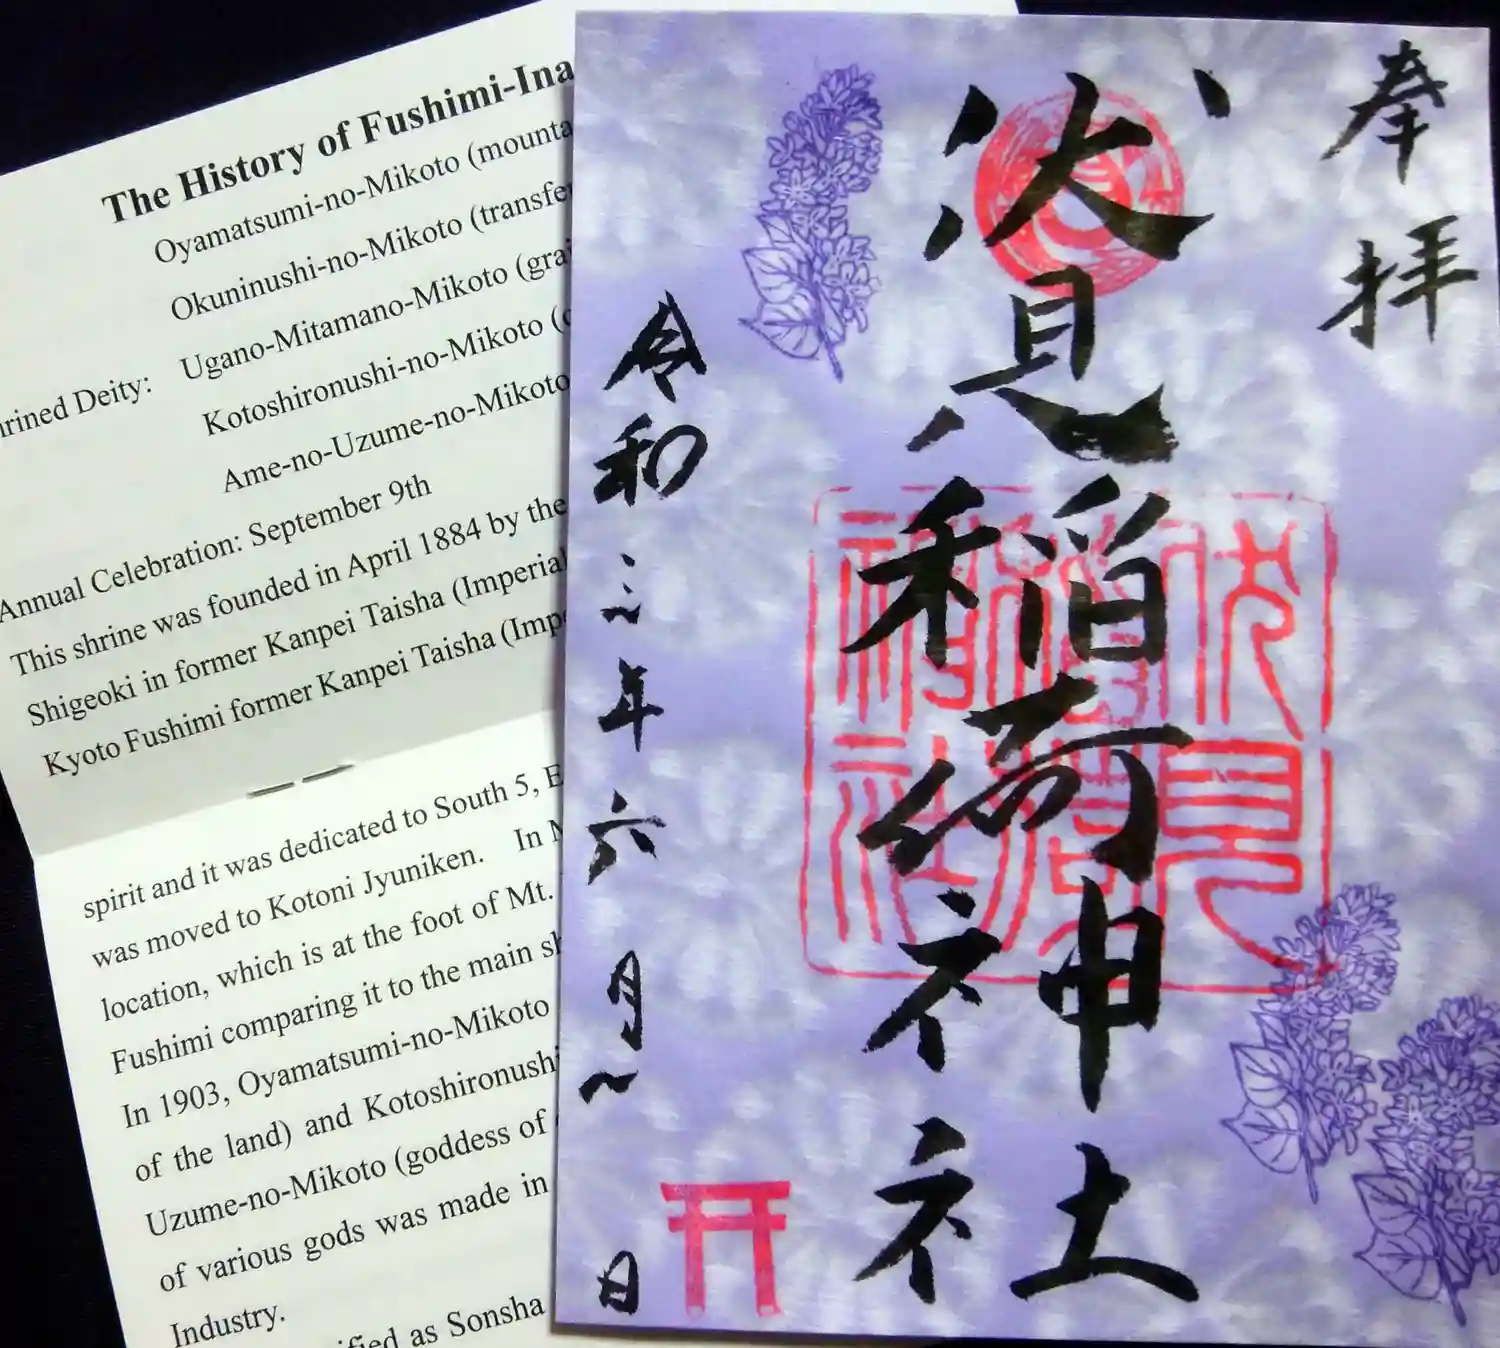 The History of Fushimi-Ina
Oyamatsumi-no-Mikoto (mounta
Okuninushi-no-Mikoto (transfe
hrined Deity: Ugano-Mitamano-Mikoto (grai
Kotoshironushi-no-Mikoto (
Ame-no-Uzume-no-Mikoto
Annual Celebration: September 9th
This shrine was founded in April 1884 by the
Shigeoki in former Kanpei Taisha (Imperial
Kyoto Fushimi former Kanpei Taisha (Imp
spirit and it was dedicated to South 5, E
was moved to Kotoni Jyuniken. In
location, which is at the foot of Mt.
Fushimi comparing it to the main sh
In 1903, Oyamatsumi-no-Mikoto
of the land) and Kotoshironushi
Uzume-no-Mikoto (goddess of
of various gods was made in
Industry.
ified as Sonsha
奉拝
伏見稲荷神社
令和三年六月 日
伏見
稲荷
神社